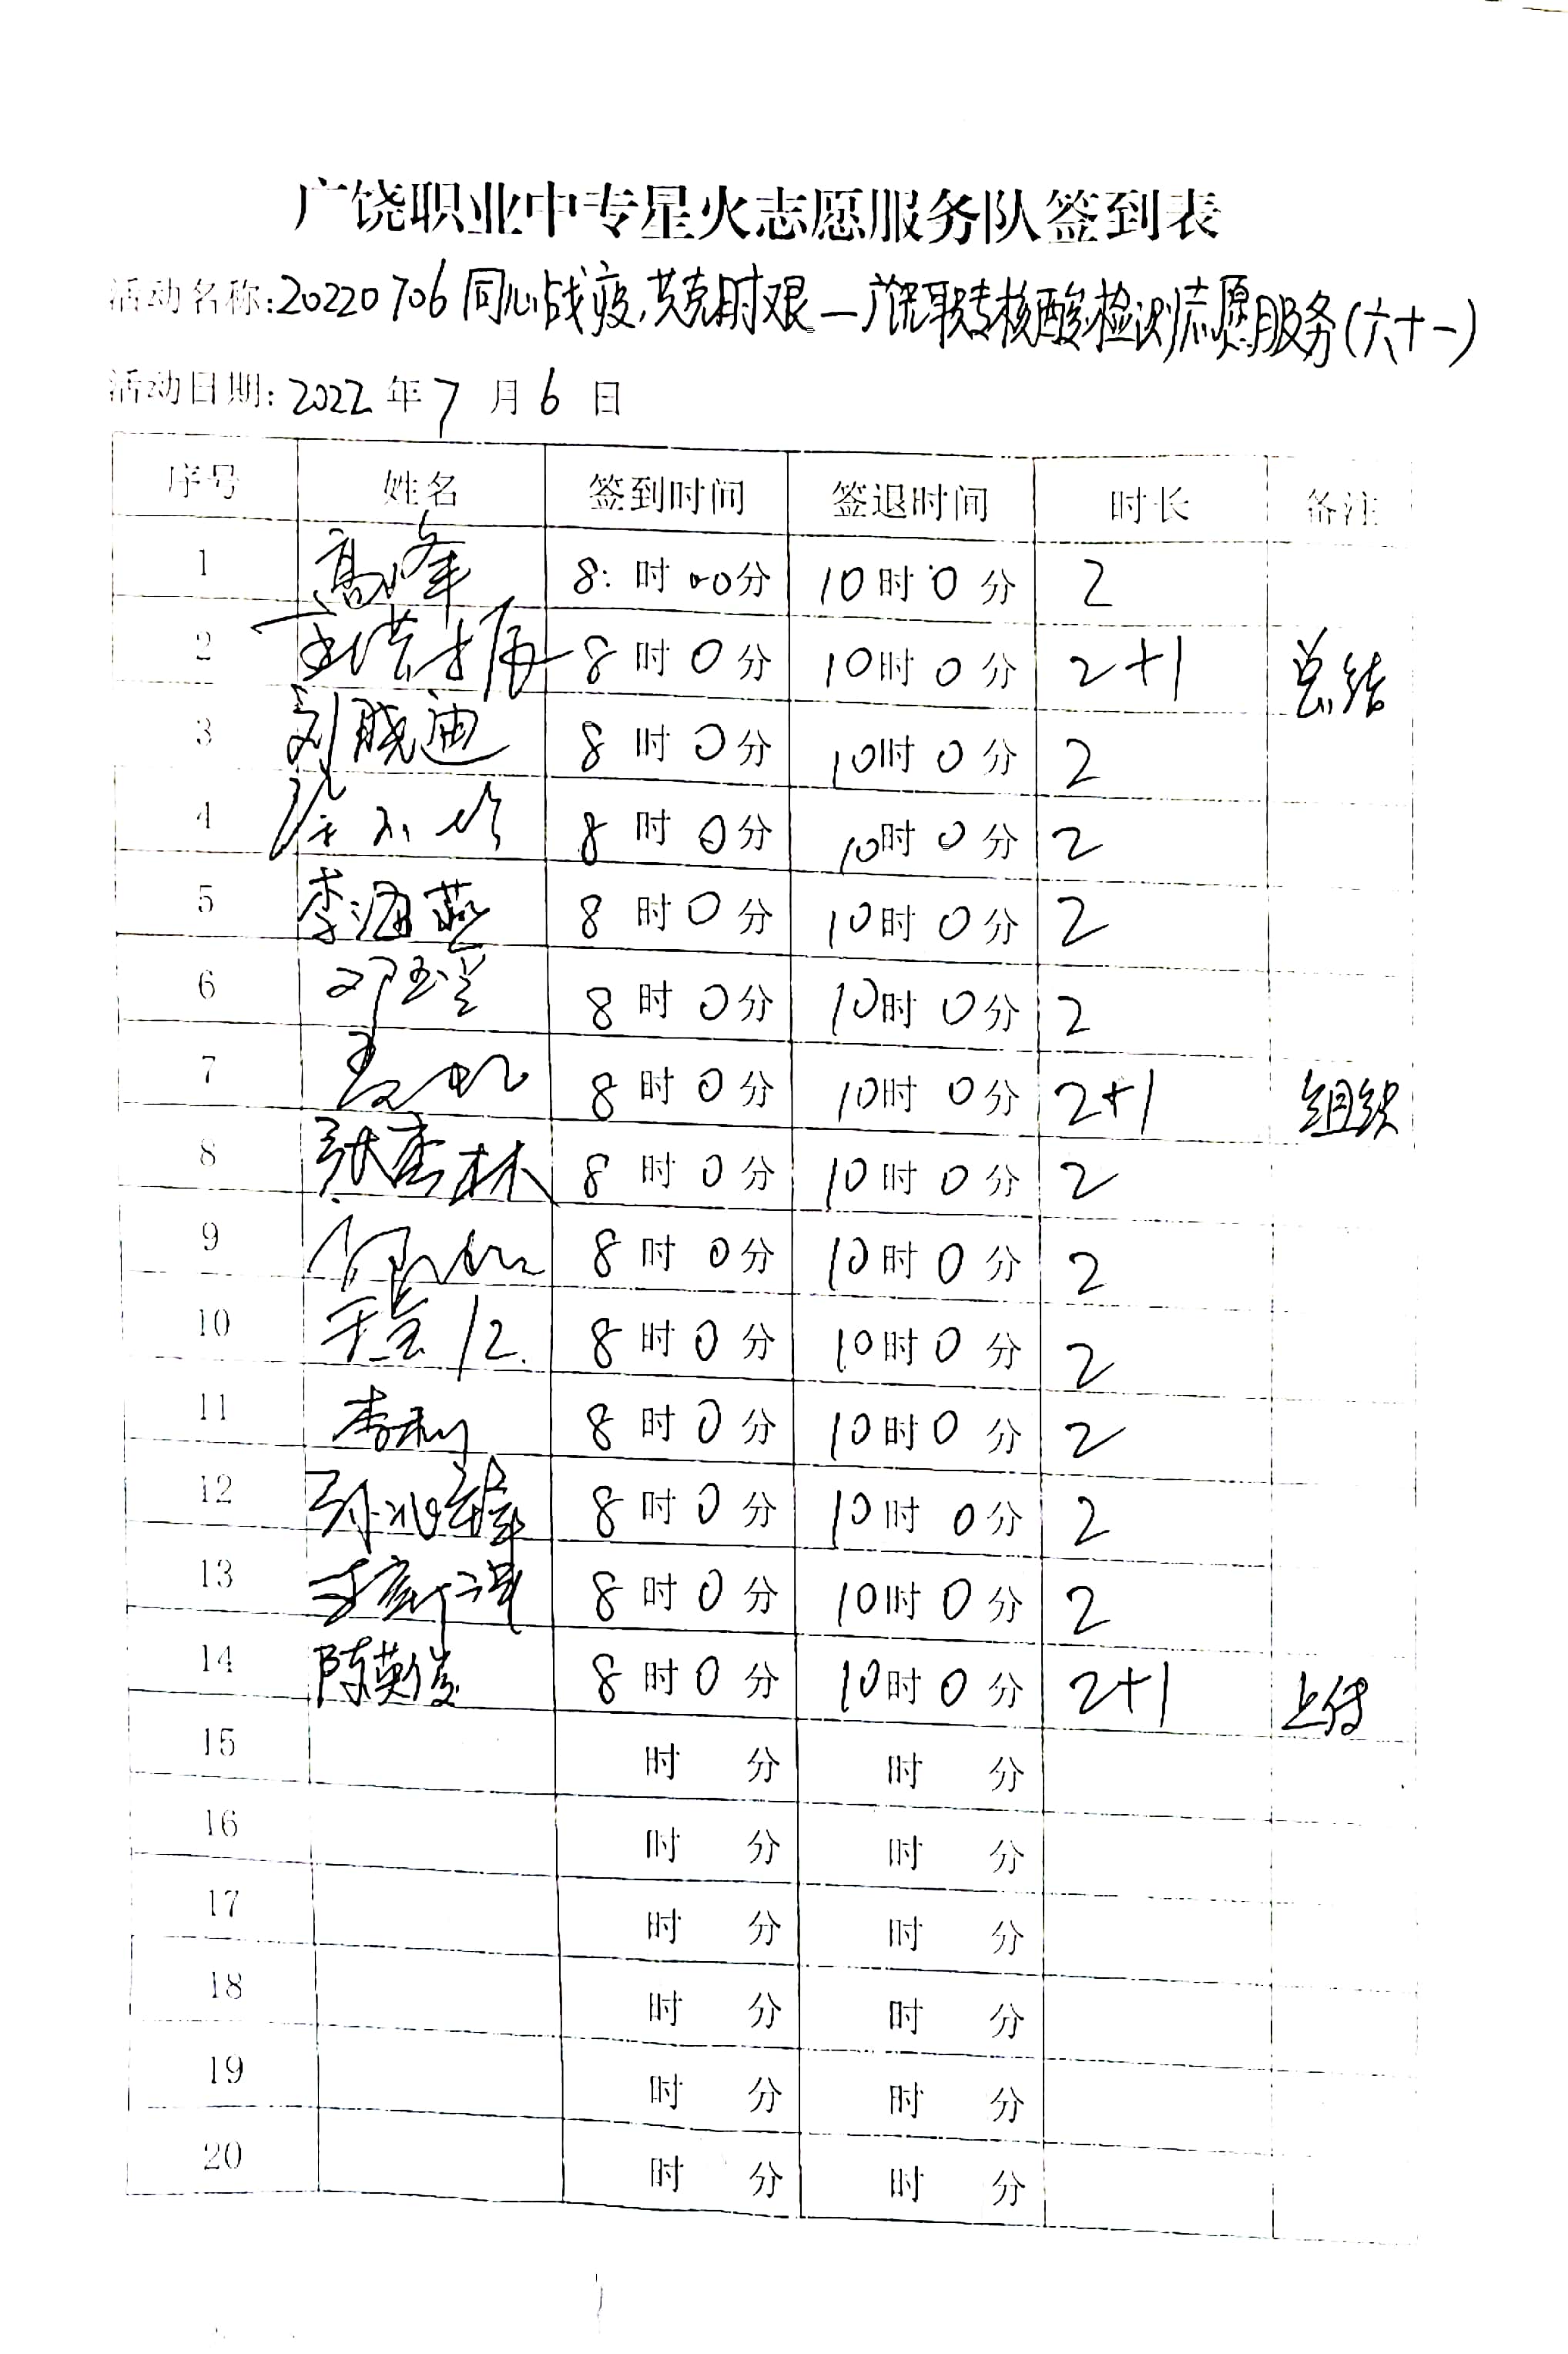 广饶职业中专星火志愿服务队签到表
活动名称:20220706同心战疫,共克时艰—广饶职专核酸检测志愿服务(六十一)
活动日期:2022年7月6日
序号 姓名 签到时间 签退时间 时长 备注
1 高峰 8:时00分 10时0分 2
2 8时0分 10时0分 2+1 总结
3 刘晓迪 8时0分 10时0分 2
4 8时0分 10时0分 2
5 李海燕 8时0分 10时0分 2
6 8时0分 10时0分 2
7 8时0分 10时0分 2+1 组织
8 张杏林 8时0分 10时0分 2
9 8时0分 10时0分 2
10 8时0分 10时0分 2
11 李利 8时0分 10时0分 2
12 8时0分 10时0分 2
13 8时0分 10时0分 2
14 陈英俊 8时0分 10时0分 2+1 上传
15 时 分 时 分
16 时 分 时 分
17 时 分 时 分
18 时 分 时 分
19 时 分 时 分
20 时 分 时 分